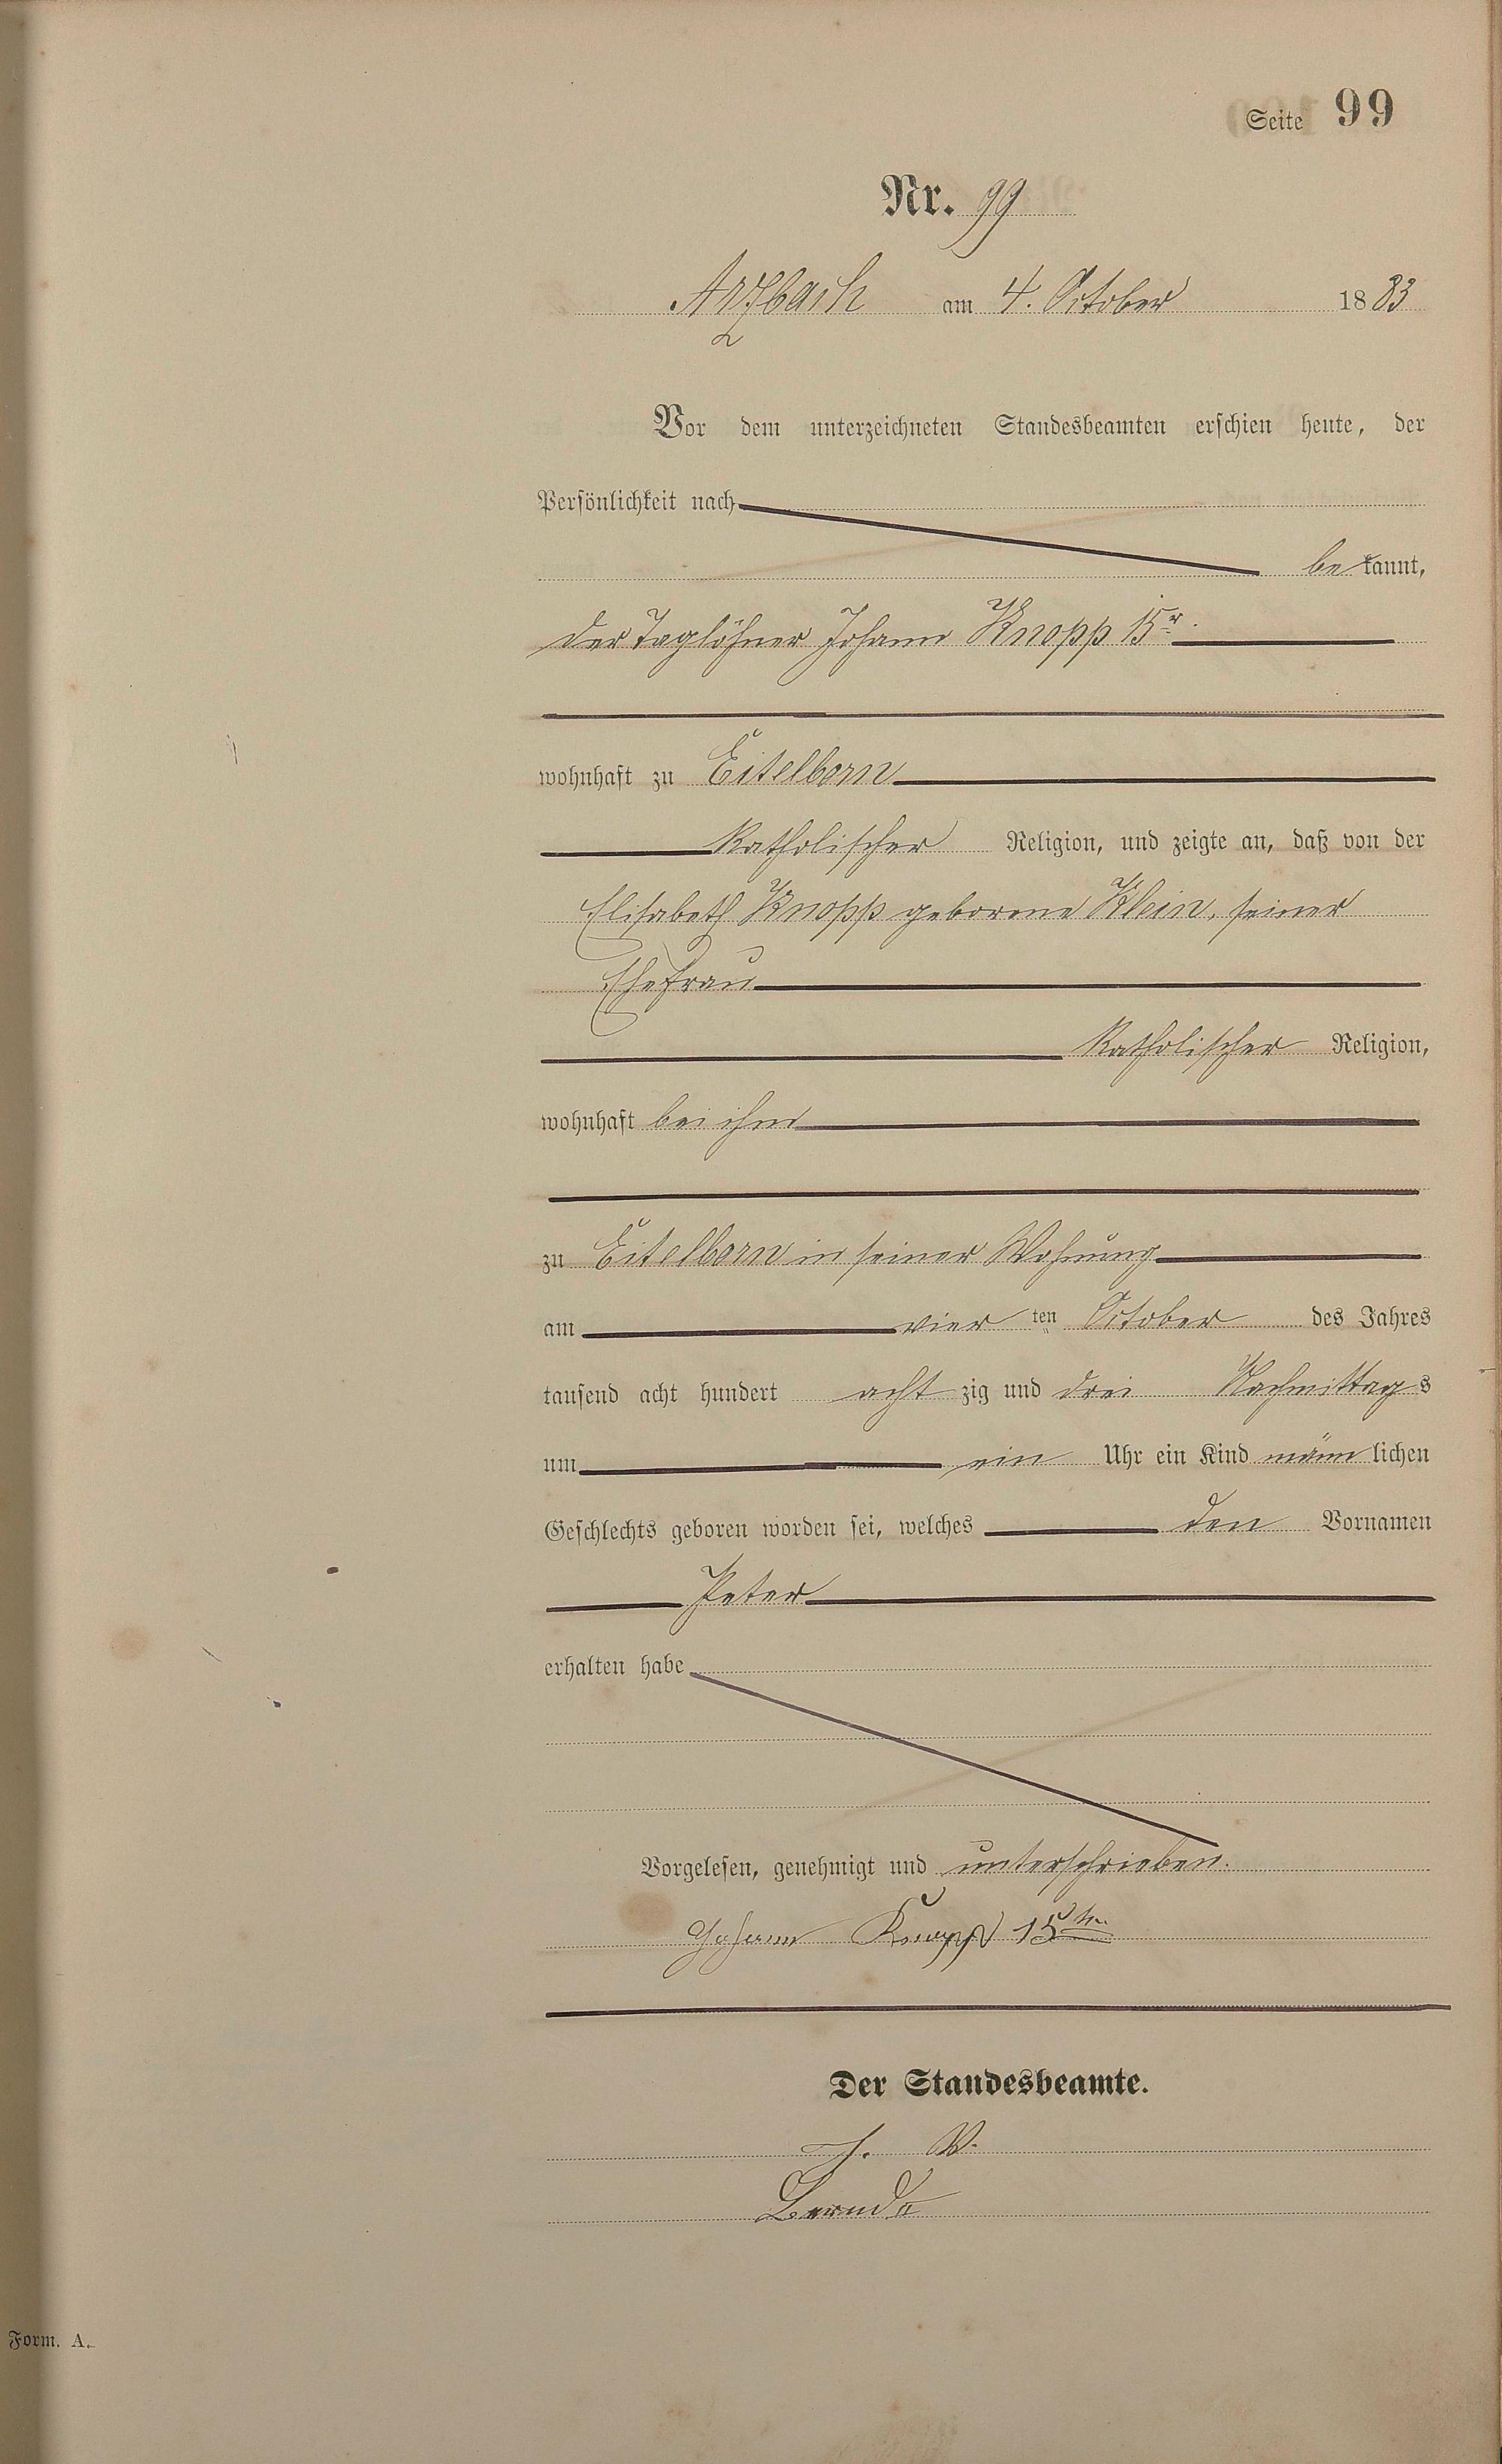 Seite 99
Nr. 99
Arzbach am 4. October 1883
Vor dem unterzeichneten Standesbeamten erschien heute, der
Persönlichkeit nach
be kannt,
der Taglöhner Johann Knopp 15r.
wohnhaft zu Eitelborn
katholischer Religion, und zeigte an, daß von der
Elisabeth Knopp geborene Klein, seiner
Ehefrau
katholischer Religion,
wohnhaft bei ihm
zu Eitelborn in seiner Wohnung
am vier ten October des Jahres
tausend acht hundert acht zig und drei Nachmittags
um ein Uhr ein Kind männlichen
Geschlechts geboren worden sei, welches den Vornamen
Peter
erhalten habe
Vorgelesen, genehmigt und unterschrieben.
Johann Knopp 15ter
Der Standesbeamte.
J. V.
Form. A.